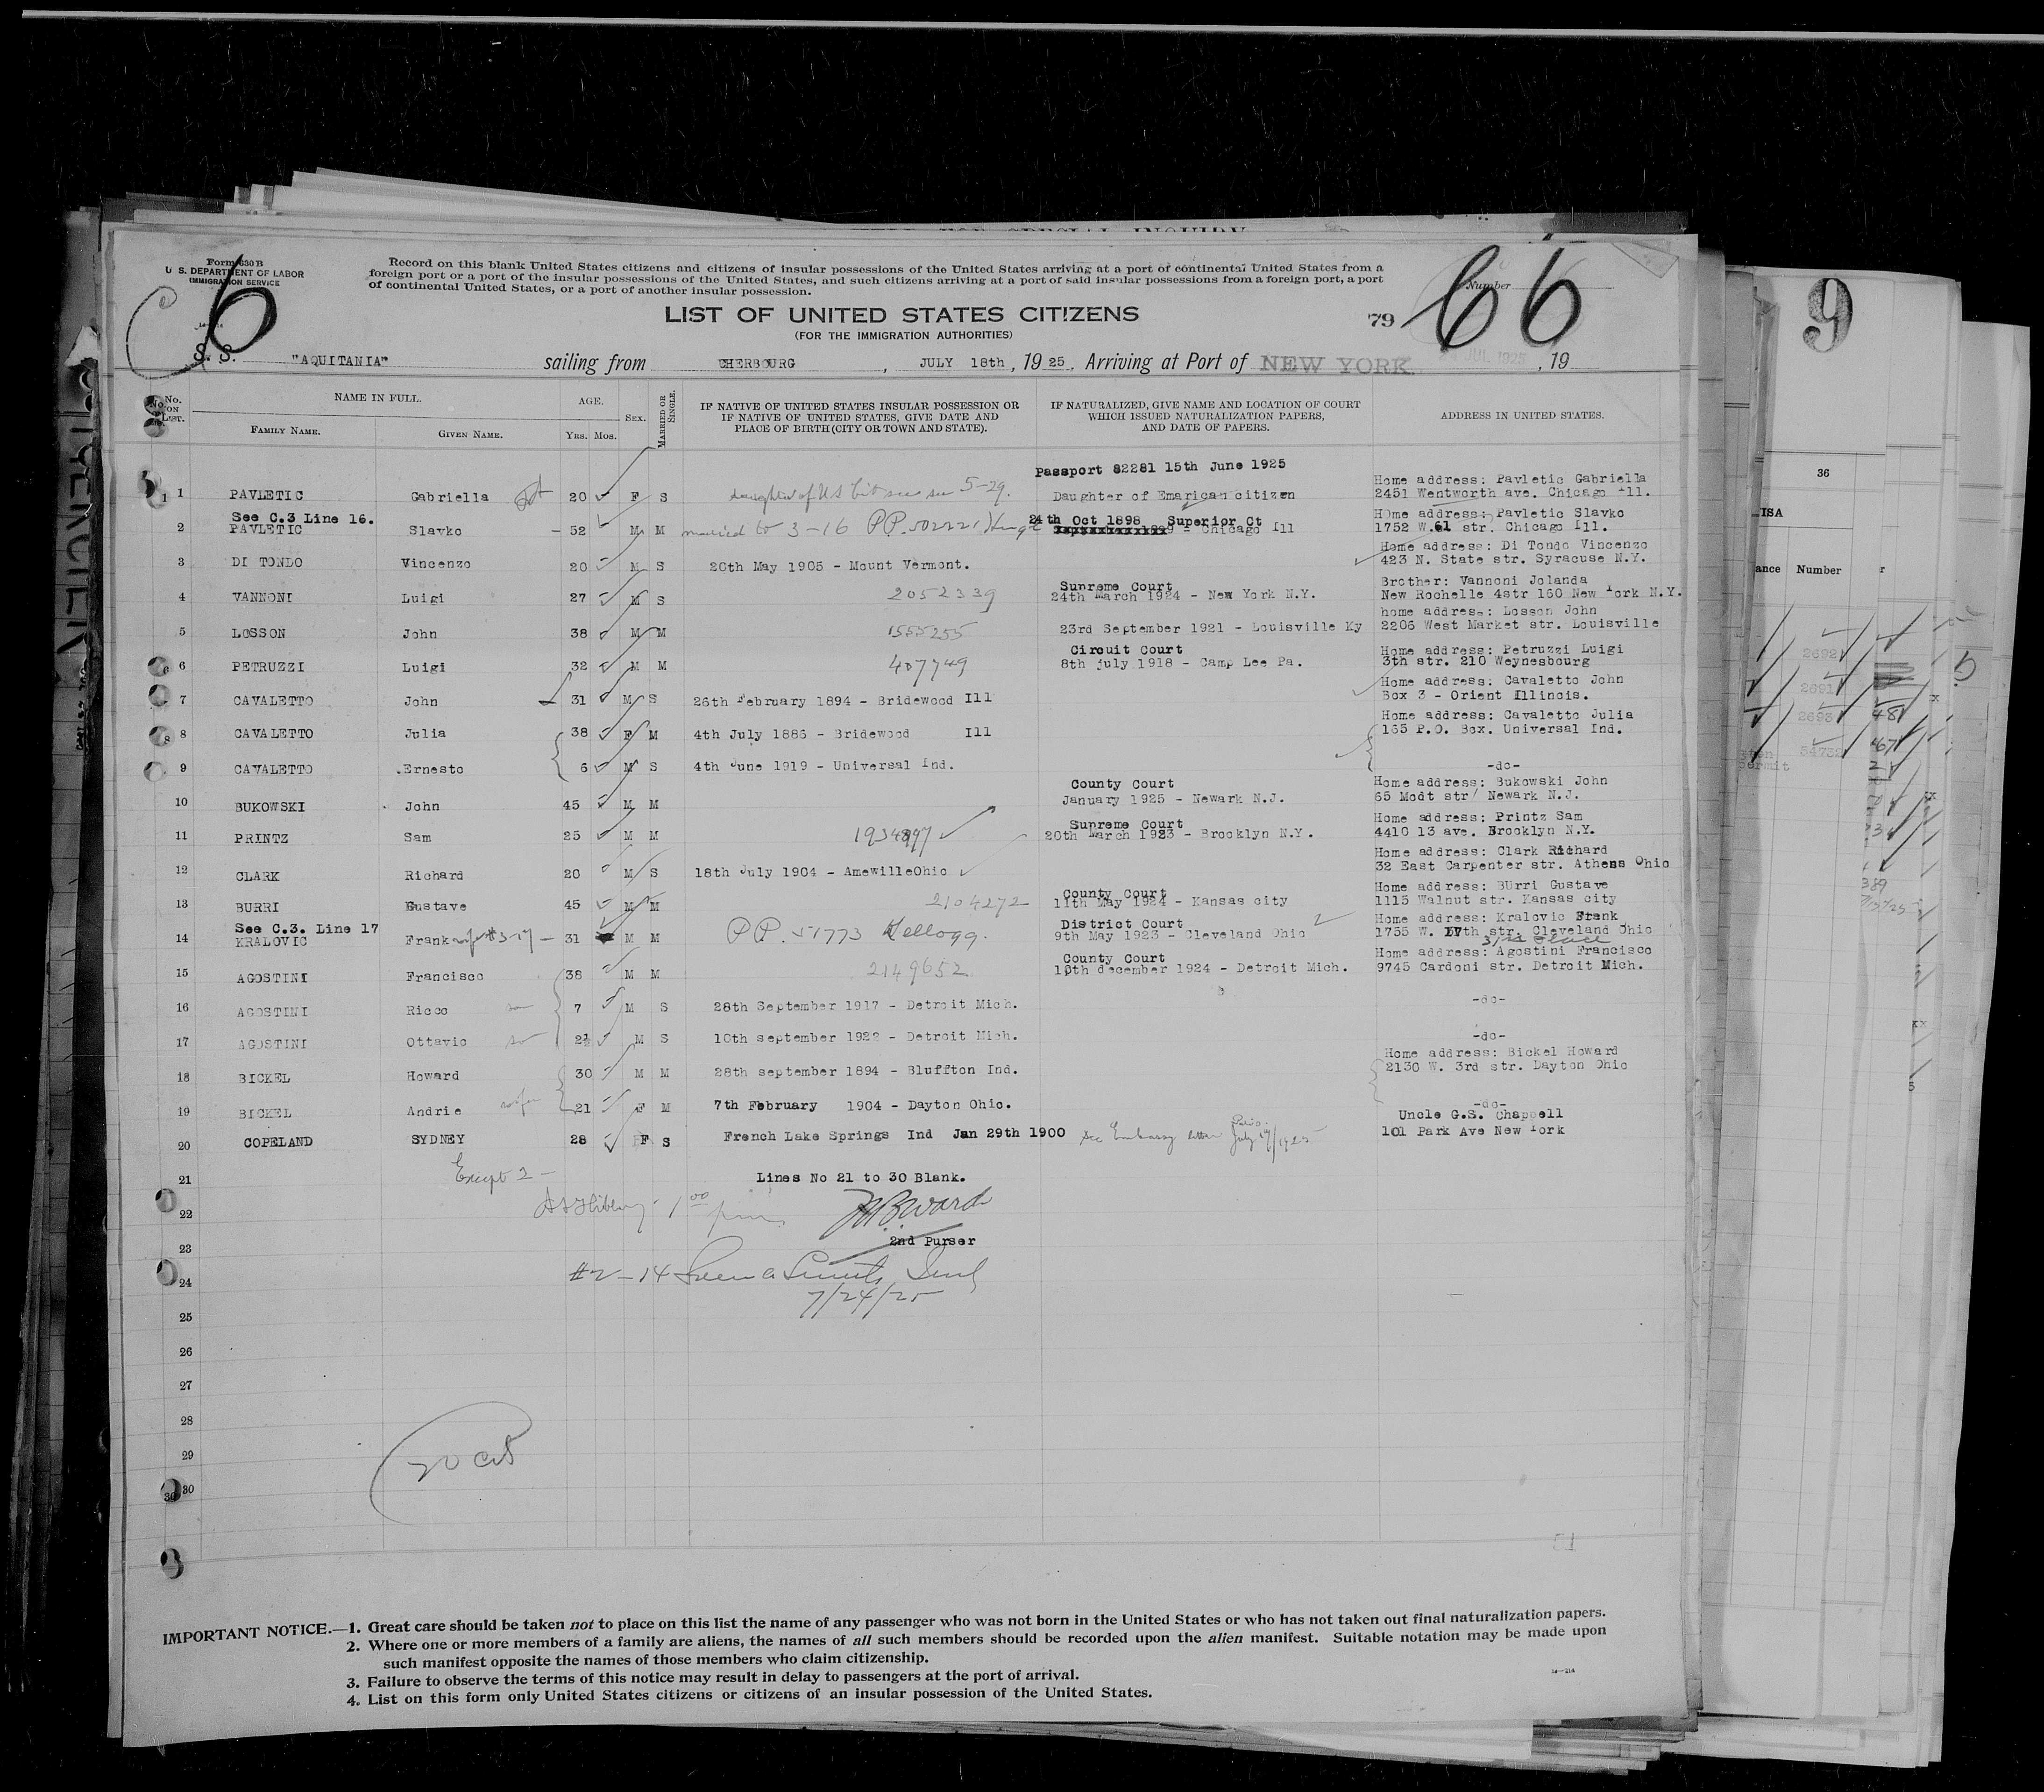 Form 630 B
U. S. DEPARTMENT OF LABOR
IMMIGRATION SERVICE
6
Record on this blank United States citizens and citizens of insular possessions of the United States arriving at a port of continental United States from a
foreign port or a port of the insular possessions of the United States, and such citizens arriving at a port of said insular possessions from a foreign port, a port
of continental United States, or a port of another insular possession.
Number
66
LIST OF UNITED STATES CITIZENS
(FOR THE IMMIGRATION AUTHORITIES)
79
S. S. "AQUITANIA" sailing from CHERBOURG, JULY 18th, 1925. Arriving at Port of NEW YORK JUL 1925, 19
No. ON LIST.
NAME IN FULL.
FAMILY NAME. GIVEN NAME.
AGE.
YRS. MOS.
SEX.
MARRIED OR SINGLE.
IF NATIVE OF UNITED STATES INSULAR POSSESSION OR
IF NATIVE OF UNITED STATES, GIVE DATE AND
PLACE OF BIRTH (CITY OR TOWN AND STATE).
IF NATURALIZED, GIVE NAME AND LOCATION OF COURT
WHICH ISSUED NATURALIZATION PAPERS,
AND DATE OF PAPERS.
ADDRESS IN UNITED STATES.
Passport 82281 15th June 1925
Home address: Pavletic Gabriella
1 PAVLETIC Gabriella 20 F S daughter of US 5-29. Daughter of Emarican citizen 2451 Wentworth ave. Chicago Ill.
See C.3 Line 16. 24th Oct 1898 Superior Ct Home address: Pavletic Slavko
2 PAVLETIC Slavko - 52 M M married to 3-16 PP. 502221 9 - Chicago Ill 1752 W.61 str. Chicago Ill.
Home address: Di Tondo Vincenzo
3 DI TONDO Vincenzo 20 M S 20th May 1905 - Mount Vermont. 423 N. State str. Syracuse N.Y.
Supreme Court Brother: Vannoni Jolanda
4 VANNONI Luigi 27 M S 2052339 24th March 1924 - New York N.Y. New Rochelle 4str 160 New York N.Y.
home address: Losson John
5 LOSSON John 38 M M 1555255 23rd September 1921 - Louisville Ky 2206 West Market str. Louisville
Circuit Court Home address: Petruzzi Luigi
6 PETRUZZI Luigi 32 M M 407749 8th july 1918 - Camp Lee Pa. 3th str. 210 Weynesbourg
Home address: Cavaletto John
7 CAVALETTO John 31 M S 26th February 1894 - Bridewood Ill Box 3 - Orient Illinois.
Home address: Cavaletto Julia
8 CAVALETTO Julia 38 F M 4th July 1886 - Bridewood Ill 165 P.O. Box. Universal Ind.
9 CAVALETTO Ernesto 6 M S 4th June 1919 - Universal Ind. -do-
County Court Home address: Bukowski John
10 BUKOWSKI John 45 M M January 1925 - Newark N.J. 65 Modt str Newark N.J.
Supreme Court Home address: Printz Sam
11 PRINTZ Sam 25 M M 1934897 20th March 1923 - Brooklyn N.Y. 4410 13 ave. Brooklyn N.Y.
Home address: Clark Richard
12 CLARK Richard 20 M S 18th July 1904 - AmewilleOhio 32 East Carpenter str. Athens Ohio
County Court Home address: BUrri Gustave
13 BURRI Gustave 45 M M 2104272 11th May 1924 - Kansas city 1115 Walnut str. Kansas city
See C.3. Line 17 District Court Home address: Kralovic Frank
14 KRALOVIC Frank 31 M M PP. 51773 Kellogg. 9th May 1923 - Cleveland Ohio 1755 W. str. Cleveland Ohio
County Court Home address: Agostini Francisco
15 AGOSTINI Francisco 38 M M 2149652 10th december 1924 - Detroit Mich. 9745 Cardoni str. Detroit Mich.
16 AGOSTINI Ricco 7 M S 28th September 1917 - Detroit Mich. -do-
17 AGOSTINI Ottavio 2½ M S 10th september 1922 - Detroit Mich. -do-
Home address: Bickel Howard
18 BICKEL Howard 30 M M 28th september 1894 - Bluffton Ind. 2130 W. 3rd str. Dayton Ohio
19 BICKEL Andrie 21 F M 7th February 1904 - Dayton Ohio. -do-
Uncle G.S. Chappell
20 COPELAND SYDNEY 28 F S French Lake Springs Ind Jan 29th 1900 see Embassy letter Paris July 19/1925 101 Park Ave New York
Except 2 -
21 Lines No 21 to 30 Blank.
22
2nd Purser
23
24 #2-14
7/24/25
25
26
27
28
29
20 cit
30
IMPORTANT NOTICE.—1. Great care should be taken not to place on this list the name of any passenger who was not born in the United States or who has not taken out final naturalization papers.
2. Where one or more members of a family are aliens, the names of all such members should be recorded upon the alien manifest. Suitable notation may be made upon
such manifest opposite the names of those members who claim citizenship.
3. Failure to observe the terms of this notice may result in delay to passengers at the port of arrival.
4. List on this form only United States citizens or citizens of an insular possession of the United States.
9
36
ISA
ance Number
2692
2691
2693
54732